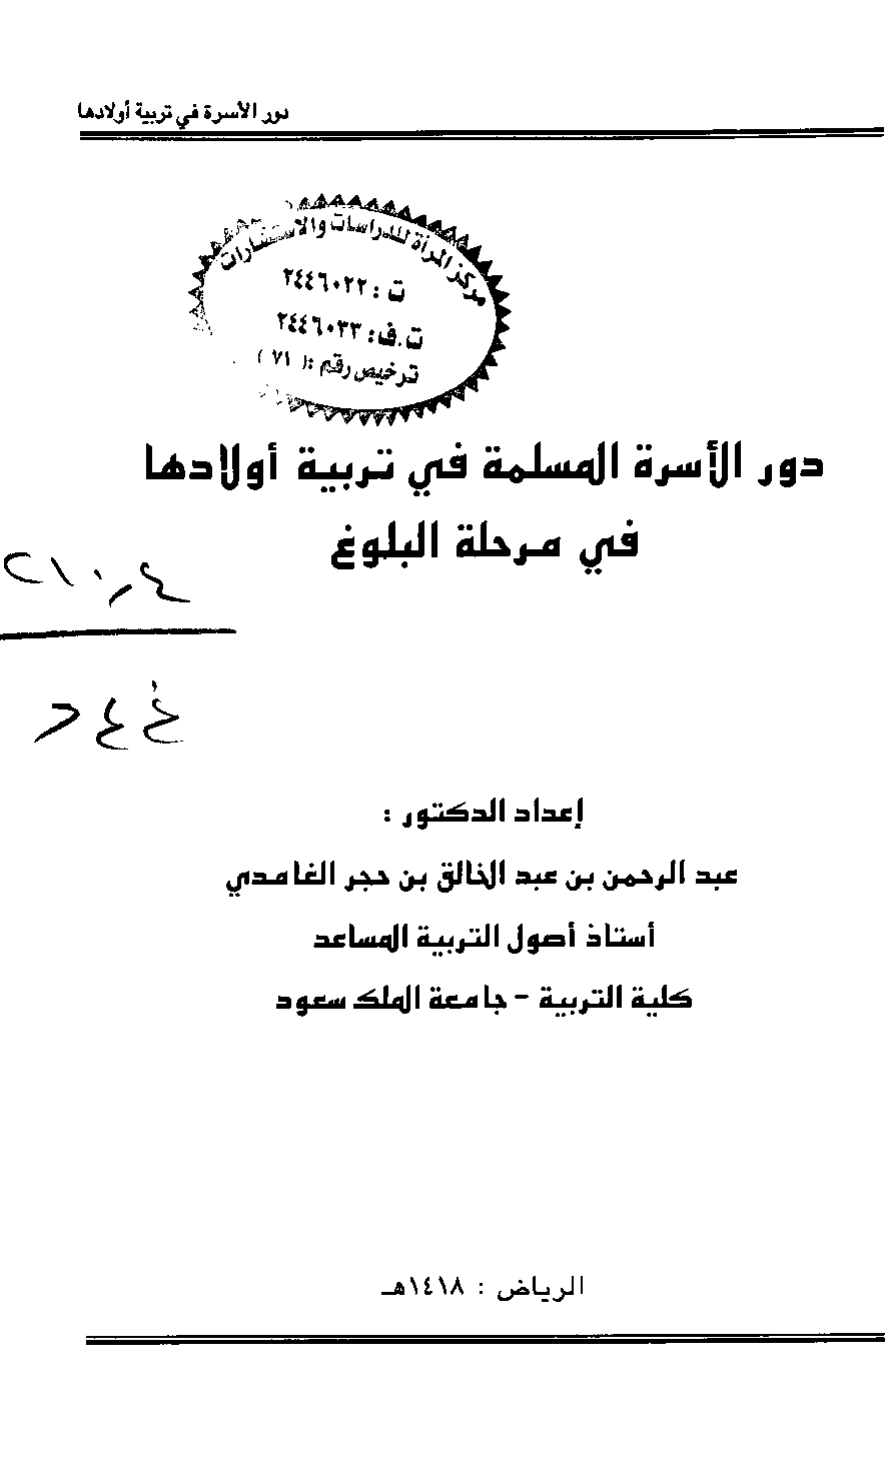 دور الأسرة في تربية أولادها
مركز المرأة للدراسات والاستشارات
ت : ٢٤٤٦٠٢٢
ت.ف: ٢٤٤٦٠٣٣
ترخيص رقم :( ٧١ )
دور الأسرة المسلمة في تربية أولادها
في مرحلة البلوغ
إعداد الدكتور :
عبد الرحمن بن عبد الخالق بن حجر الغامدي
أستاذ أصول التربية المساعد
كلية التربية - جامعة الملك سعود
الرياض : ١٤١٨هـ